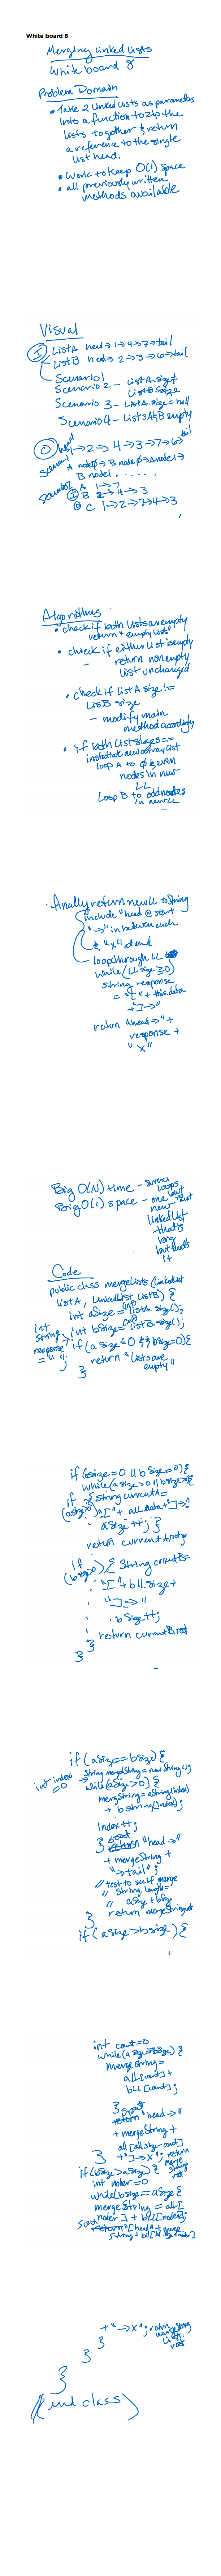 White board 8
Merging Linked Lists
White board 8
Problem Domain
• Take 2 linked lists as parameters
into a function to zip the
lists together & return
a reference to the single
list head.
• Work to keep O(1) space
• all previously written
methods available
Visual
I ListA head→1→4→7→tail
ListB head→2→3→6→tail
Scenario 1
Scenario 2 - ListA.size ≠
ListB.size
Scenario 3 - ListA.size = null
Scenario 4 - ListsA&B empty
O head 1→2→4→3→7→6→tail
A node0→B node0→A node1→
B node1 . . . . . .
A 1→7
I B 2→4→3
O C 1→2→7→4→3
Algorithms
• check if both lists are empty
return "empty lists"
• check if either list is empty
- return non empty
list unchanged
• check if list A.size !=
List B size
- modify main
method accordingly
• if both list sizes ==
loop A to 0 & even
nodes in new
LL
Loop B to odd nodes
in new LL
• finally return new LL toString
include "head @ start
"→" in between each
& "x" at end
loop through LL
while (LL size ≥ 0)
string response
= "[" + this.data
+ "]→"
return "head→" +
response +
"x"
Big O(N) time -
Big O(1) space - one
new
linked list
that's
big
but that's
it
Code
public class mergeLists(linkedList
listA, LinkedList listB) {
int aSize = (int) listA.size();
int bSize = (int) listB.size();
int
String
response
= "";
if (aSize=0 && bSize=0){
return "Lists are
empty"
}
if (aSize=0 || bSize=0){
while(aSize>0 || bSize>0){
if (aSize>0) { String currentA=
"[" + all.data + "]→"
aSize++; }
return currentA.root;
if (bSize>0) { String currentB=
"[" + bll.size +
"]→"
bSize++;
return currentB.root
}
}
if (aSize==bSize) {
int index
=0
String mergeString = new String();
while(aSize>0) {
mergeString = aString(index)
+ bString(index);
Index++;
} "head→"
+ mergeString +
"→tail";
// test to see if merge
// String.length=
// aSize + bSize
return mergeString
}
if (aSize>bSize) {
int count=0
while(aSize=bSize) {
mergeString =
all[count] +
bLL[count];
} "head→"
+ mergeString +
all[all.size-count]
+ "]→x"; return
merge
string
}
if (bSize>aSize) {
int noder=0
while(bSize==aSize {
mergeString = all[
noder] + bll[noder];
+ "→x"; return
}
}
}
//(end class)